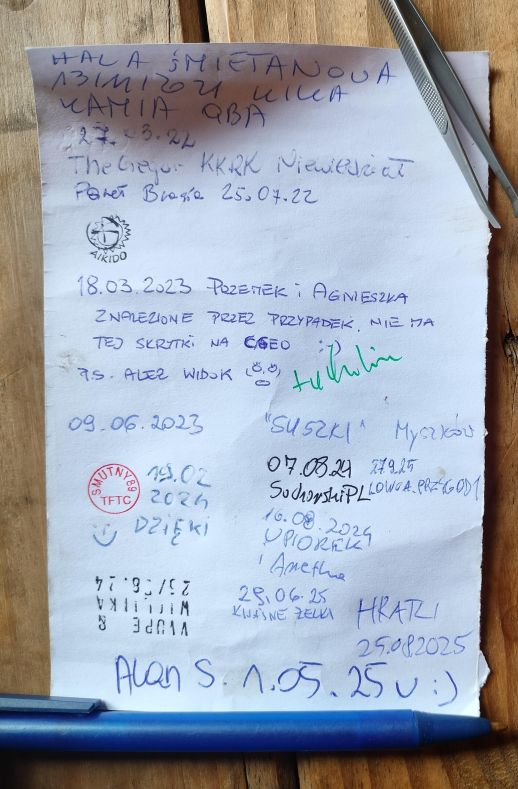 HALA ŚMIETANOWA
KAMIA QBA
TheGregor KKRK Niewiedział
Paweł 25.07.22
AIKIDO
18.03.2023 POZEMEK i AGNIESZKA
ZNALEZIONE PRZEZ PRZYPADEK. NIE MA
TEJ SKRYTKI NA GEO :-)
P.S. ALEŻ WIDOK
09.06.2023 "SUSZKI" MYSZKÓW
SMUTNY89
TFTC
19.02
2024
DZIĘKI
07.08.24
SuchorskiPL
27.9.25
ŁOWCA.PRZYGÓD1
16.08.2024
UPIOREK
i Anetka
VVUPE &
25/08.24
29.06.25
KWAŚNE ŻELKI
HRATLI
25.082025
Alan S. 1.05.25 :)